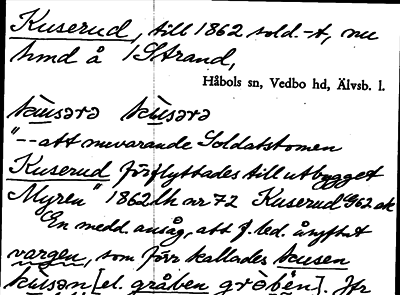 Kuserud, till 1862 sold.-t, nu
hmd å 1 Strand,
Håbols sn, Vedbo hd, Älvsb. l.
kùsərə kùsərə
"-- att nuvarande Soldatstomen
Kuserud förflyttades till utbygget
Myren" 1862 lh nr 72 Kuserud G62 ak
En medd. ansåg, att f. led. åsyftat
vargen, som förr kallades kusen
kùsən [el. gråben gròbén]. Jfr